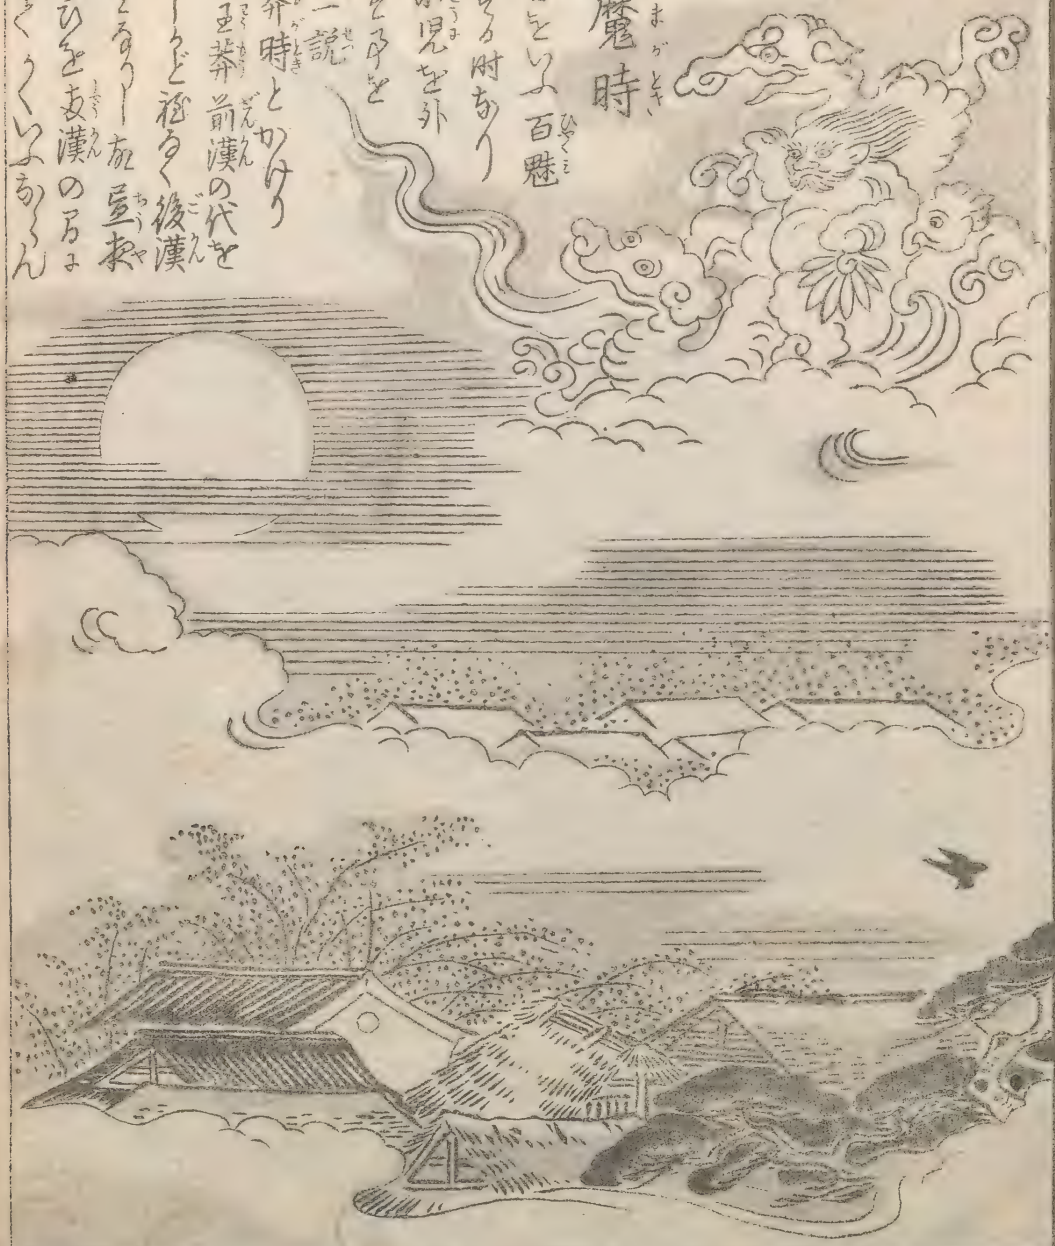 魔時
をいふ百魅
る時なり
児を外
事を
一説
莽時とかけり
王莽前漢の代を
しかど程なく後漢
となりし故昼夜
ひを両漢の間に
てかくいふならん